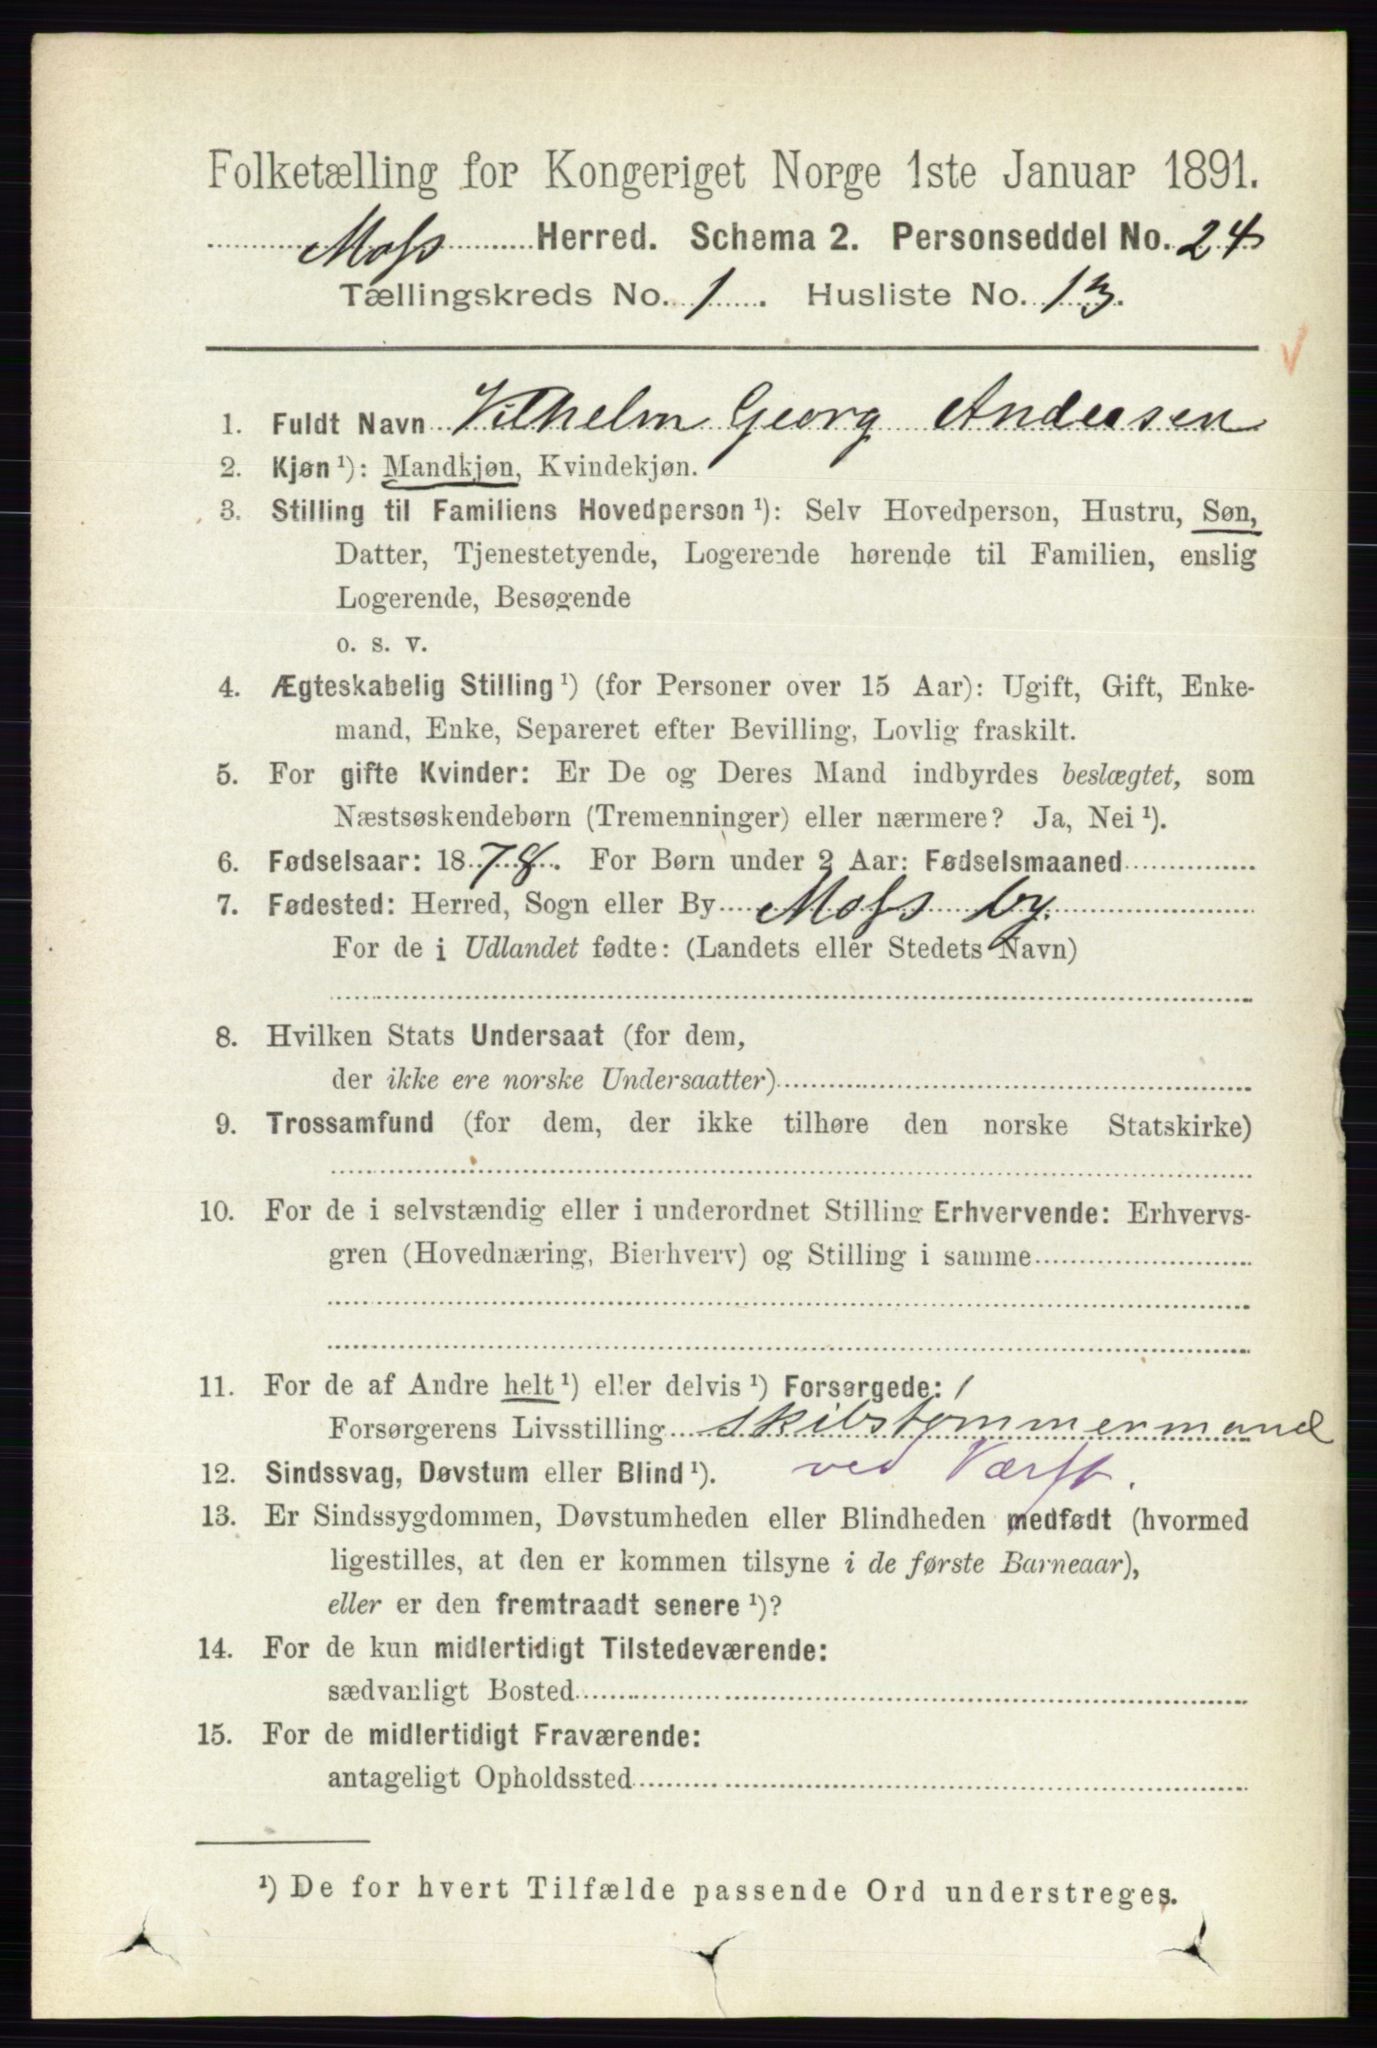 Folketælling for Kongeriget Norge 1ste Januar 1891.
Moss Herred. Schema 2. Personseddel No. 24
Tællingskreds No. 1. Husliste No. 13.
1. Fuldt Navn Vilhelm Georg Andersen
2. Kjøn ¹): Mandkjøn, Kvindekjøn.
3. Stilling til Familiens Hovedperson ¹): Selv Hovedperson, Hustru, Søn,
Datter, Tjenestetyende, Logerende hørende til Familien, enslig
Logerende, Besøgende
o. s. v.
4. Ægteskabelig Stilling ¹) (for Personer over 15 Aar): Ugift, Gift, Enke-
mand, Enke, Separeret efter Bevilling, Lovlig fraskilt.
5. For gifte Kvinder: Er De og Deres Mand indbyrdes beslægtet, som
Næstsøskendebørn (Tremenninger) eller nærmere? Ja, Nei ¹).
6. Fødselsaar: 1878. For Børn under 2 Aar: Fødselsmaaned
7. Fødested: Herred, Sogn eller By Moss by.
For de i Udlandet fødte: (Landets eller Stedets Navn)
8. Hvilken Stats Undersaat (for dem,
der ikke ere norske Undersaatter)
9. Trossamfund (for dem, der ikke tilhøre den norske Statskirke)
10. For de i selvstændig eller i underordnet Stilling Erhvervende: Erhvervs-
gren (Hovednæring, Bierhverv) og Stilling i samme
11. For de af Andre helt ¹) eller delvis ¹) Forsørgede:
Forsørgerens Livsstilling skibstømmermand
12. Sindssvag, Døvstum eller Blind ¹). ved Værft.
13. Er Sindssygdommen, Døvstumheden eller Blindheden medfødt (hvormed
ligestilles, at den er kommen tilsyne i de første Barneaar),
eller er den fremtraadt senere ¹)?
14. For de kun midlertidigt Tilstedeværende:
sædvanligt Bosted
15. For de midlertidigt Fraværende:
antageligt Opholdssted
¹) De for hvert Tilfælde passende Ord understreges.